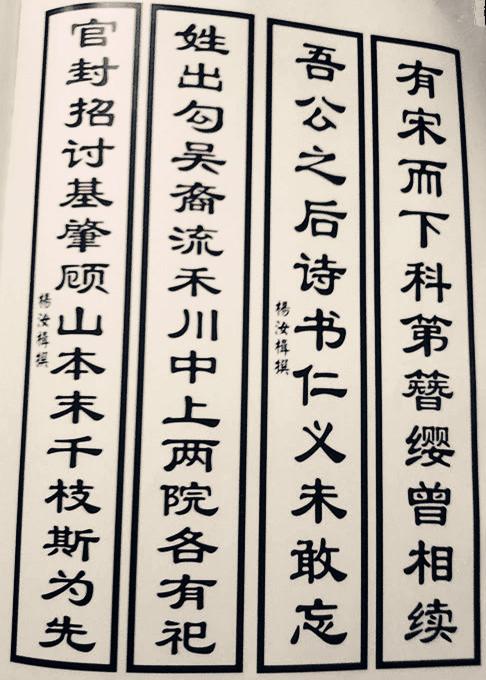 有宋而下科第簪缨曾相续
吾公之后诗书仁义未敢忘
楊汝楫撰
姓出勾吴裔流禾川中上两院各有祀
官封招讨基肇顾山本末千枝斯为先
楊汝楫撰